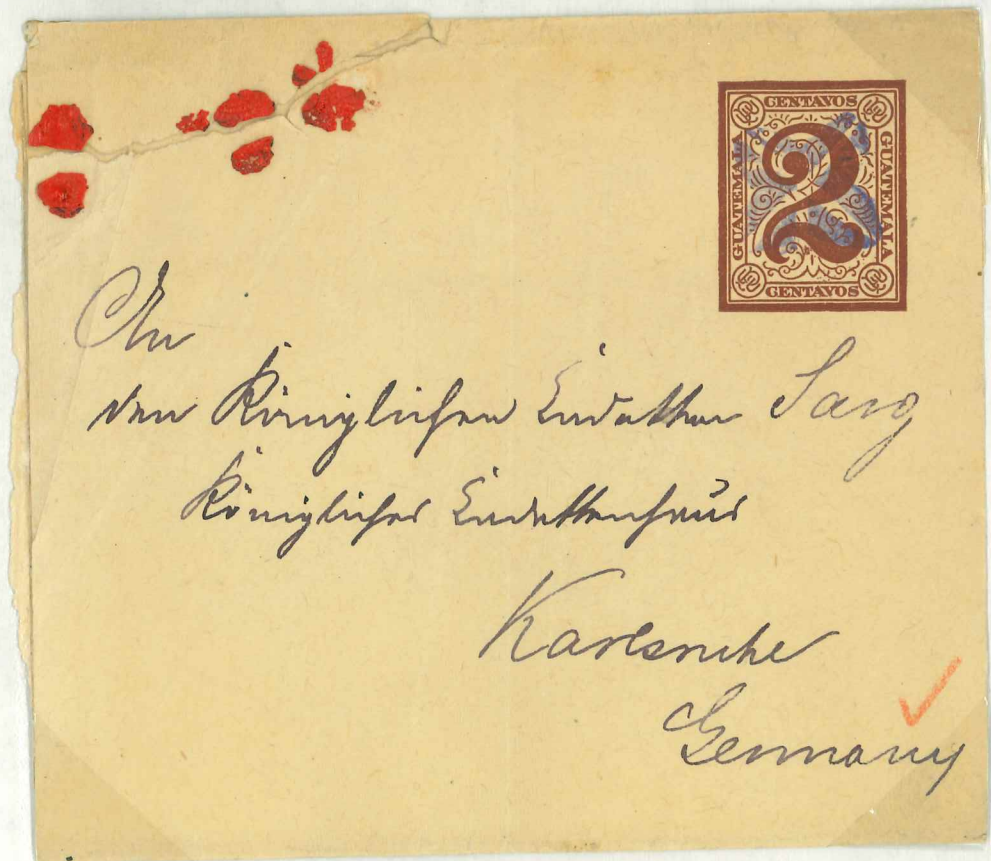 CENTAVOS
GUATEMALA
2
GUATEMALA
CENTAVOS
An
den Königlichen Kadetten Sarg
Königliches Kadettenhaus
Karlsruhe
Germany